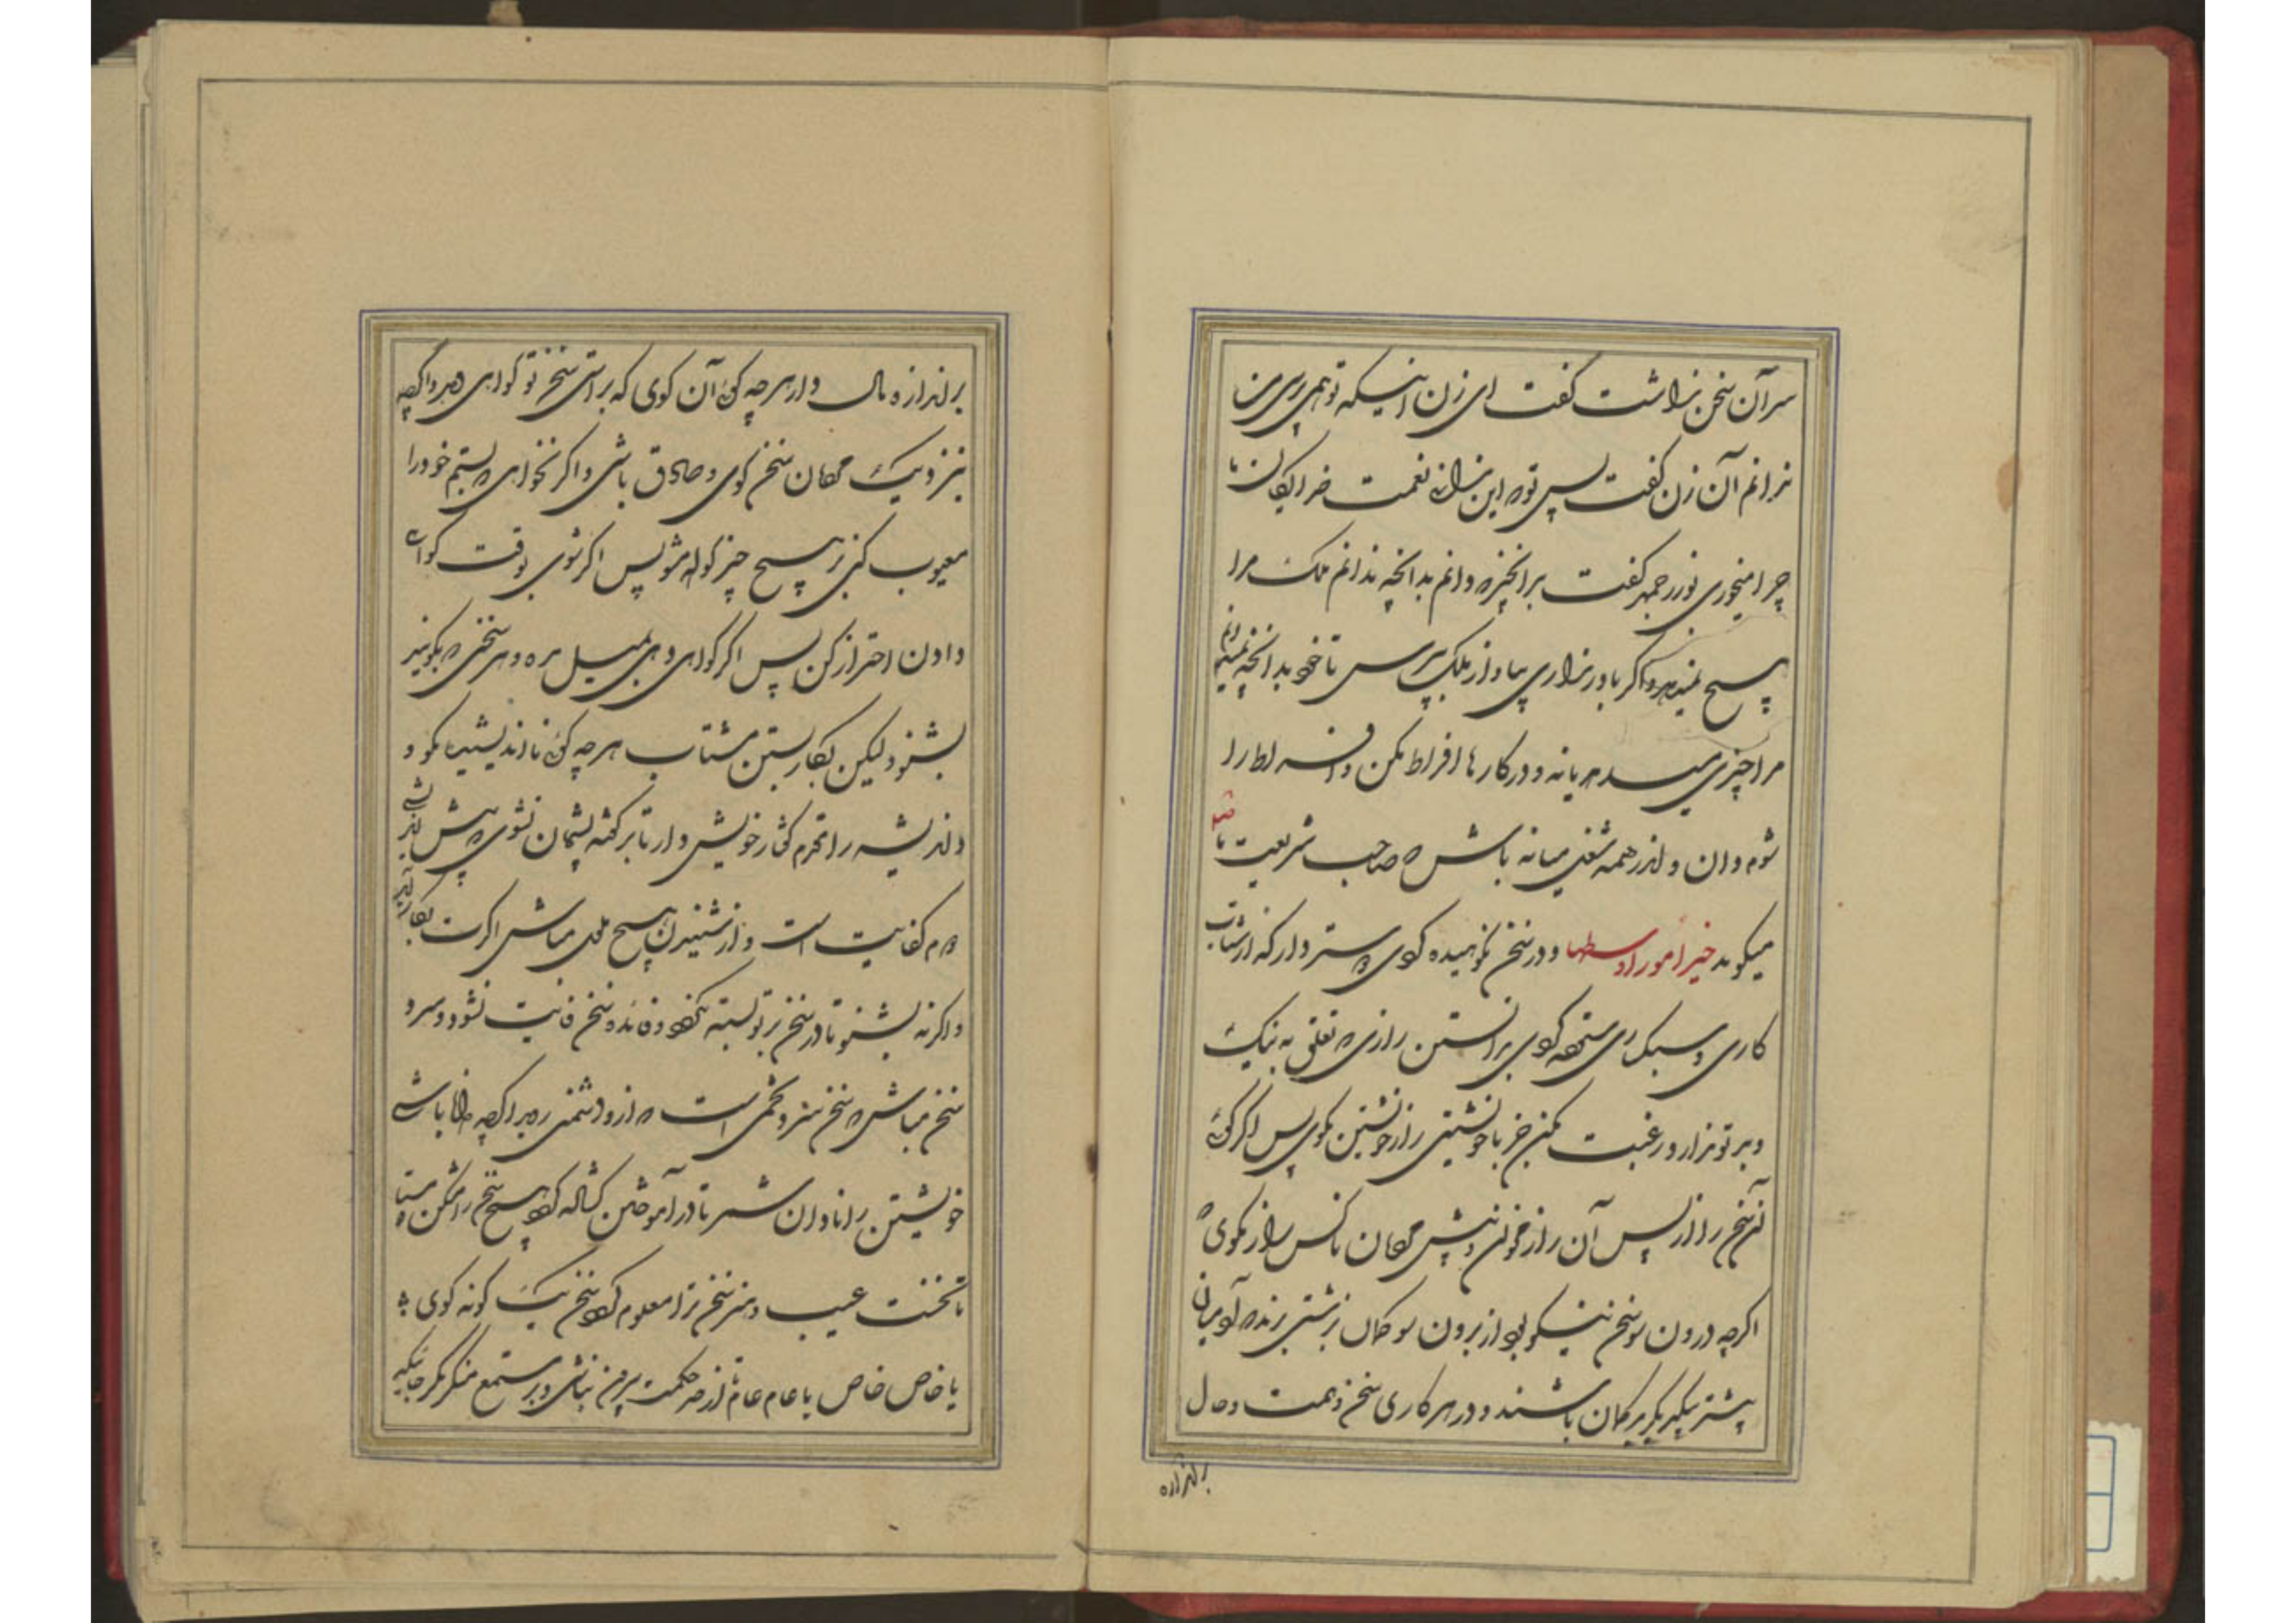 سر آن سخن نداشت گفت ای زن اینکه تو همی پرسی من
ندانم آن زن گفت پس تو که این ندانی نعمت خدایگان ما
چرا میخوری بوزرجمهر گفت بدانچیز که دانم بدانچه ندانم ملک مرا
هیچ نمیدهد و اگر باور نداری بیا و از ملک بپرس تا خود بدانچه نمیدانم
مرا چیزی میدهد یا نه و در کارها افراط مکن و افراط را
شوم دان و اندر همه شغلی میانه باش که صاحب شریعت ما
میگوید خیر امور اوسطها و در سخن نکوهیده کوی کستر دار که از شتاب
کاری و سبکساری ستوده کوی بدانستن رازی که تعلق به نیک
و بد تو ندارد رغبت مکن جز با خویشتن راز خویشتن مکوی پس اگر کوئی
آن سخن را از پس آن راز مخوان و پیش مردمان با کس راز مکوی که
اگرچه درون سو سخن نیکو بود از برون سو گمان بزشتی برند که آدمیان
بیشتر بیکدیگر بدگمان باشند و در هر کاری سخن و همت و حال
براندازه
براندازه مال دار هر چه کوئی آن کوی که براستی سخن تو کواهی دهد و اگرچه
بنزدیک مردمان سخن کوی و صادق باشی و اگر نخواهی که بستم خود را
معیوب کنی بر هیچ چیز کواه مشو پس اگر شوی بوقت کواهی
دادن احتراز مکن پس اگر کواهی دهی بمیل مده و هر سخنی که بکویند
بشنو ولیکن بکار بستن مشتاب هر چه کوئی نااندیشیده مکو و
اندیشه را مقدم گفتار خویش دار تا بر گفته پشیمان نشوی که پیش اندیشی
دوم کفایت است و از شنیدن هیچ ملول مباش اگرت بکار آید
و اگر نه بشنو تا در سخن بر تو بسته نکردد و فایده سخن فایت نشود و سرد
سخن مباش که سخن سرد تخمی است که ازو دشمنی روید اگرچه دانا باشی
خویشتن را نادان شمر تا در آموختن کشاده کردد هیچ سخن را مشکن و مستای
تا نخست عیب و هنر سخن ترا معلوم کردد سخن یک کونه کوی
با خاص خاص با عام عام تا از حد حکمت بیرون نباشی و بر مستمع منکر مگر جائیکه